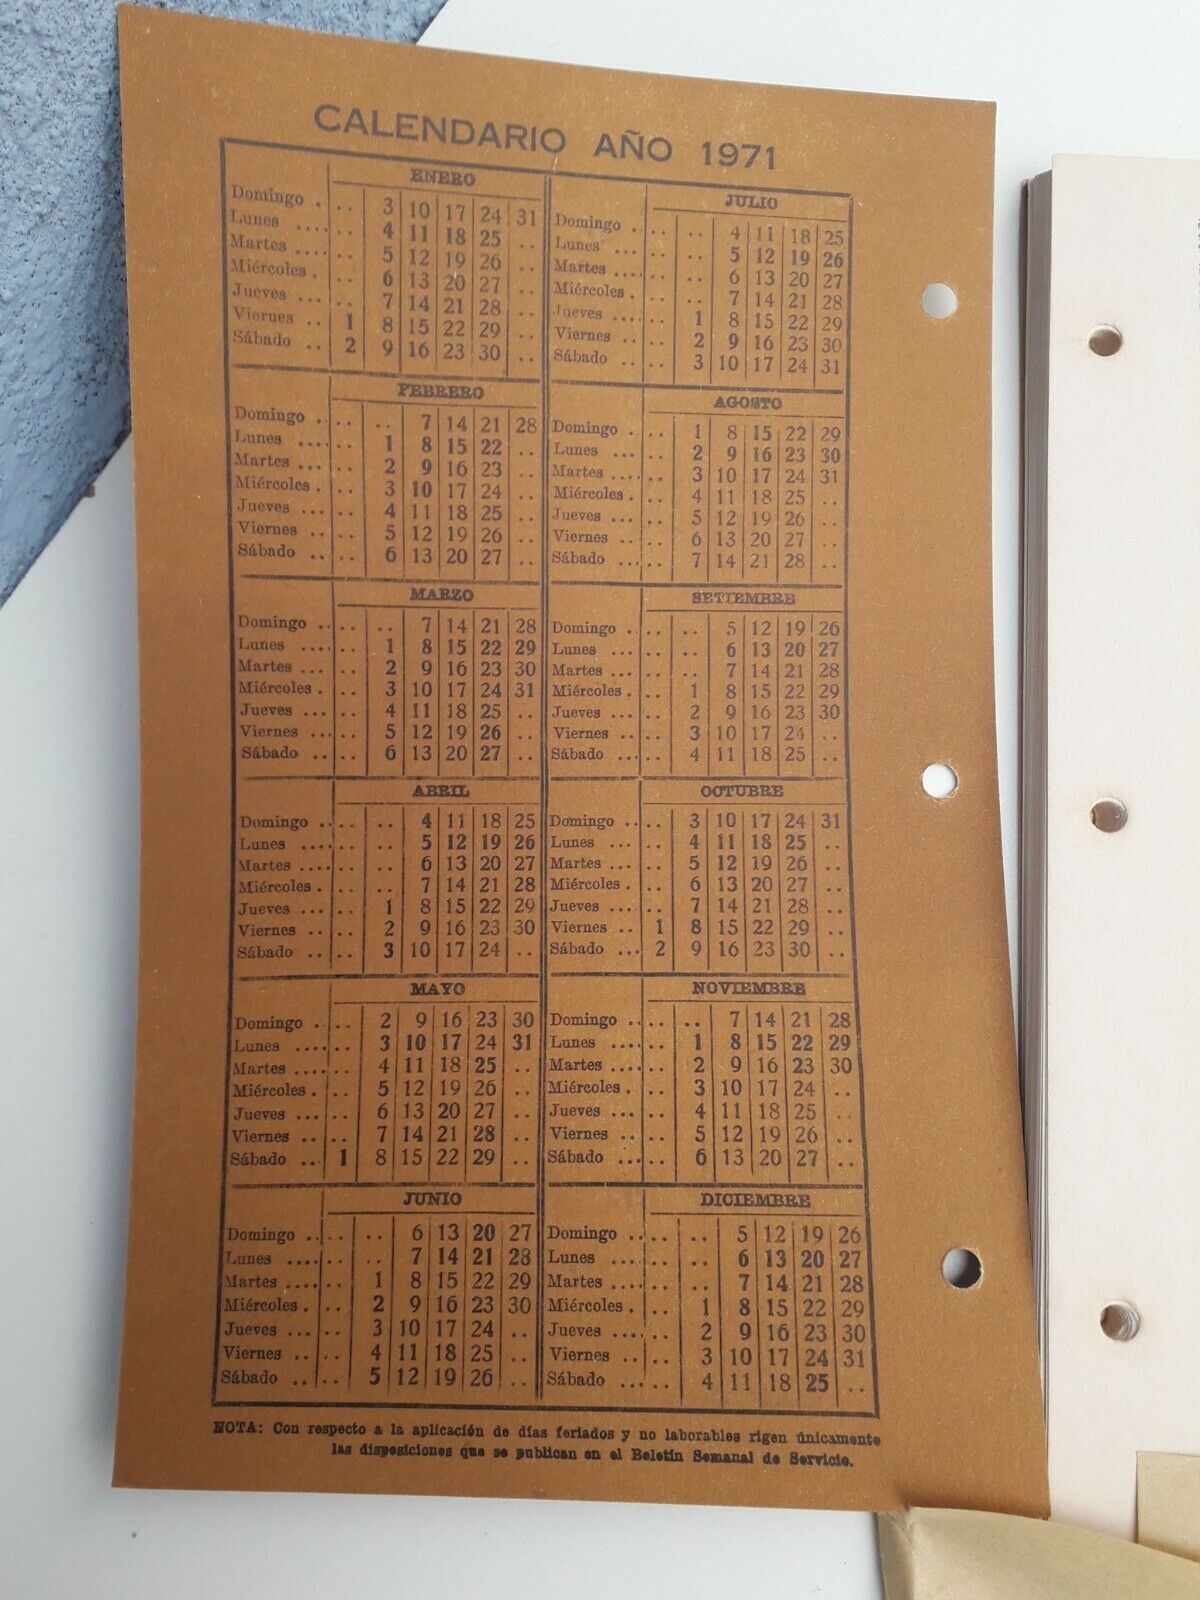 CALENDARIO AÑO 1971
ENERO
Domingo . .. 3 10 17 24 31
Lunes .... 4 11 18 25 ..
Martes .... 5 12 19 26 ..
Miércoles . 6 13 20 27 ..
Jueves ... .. 7 14 21 28 ..
Viernes .. 1 8 15 22 29 ..
Sábado .. 2 9 16 23 30 ..
FEBRERO
Domingo . .. 7 14 21 28
Lunes .... .. 1 8 15 22 ..
Martes .... .. 2 9 16 23 ..
Miércoles . .. 3 10 17 24 ..
Jueves ... .. 4 11 18 25 ..
Viernes .. .. 5 12 19 26 ..
Sábado .. .. 6 13 20 27 ..
MARZO
Domingo .. .. .. 7 14 21 28
Lunes .... .. 1 8 15 22 29
Martes .... .. 2 9 16 23 30
Miércoles . .. 3 10 17 24 31
Jueves ... .. 4 11 18 25 ..
Viernes .. .. 5 12 19 26 ..
Sábado .. .. 6 13 20 27 ..
ABRIL
Domingo .. .. .. 4 11 18 25
Lunes .... .. .. 5 12 19 26
Martes .... .. .. 6 13 20 27
Miércoles . .. .. 7 14 21 28
Jueves ... .. 1 8 15 22 29
Viernes .. .. 2 9 16 23 30
Sábado .. .. 3 10 17 24 ..
MAYO
Domingo . .. 2 9 16 23 30
Lunes .... .. 3 10 17 24 31
Martes .... .. 4 11 18 25 ..
Miércoles . .. 5 12 19 26 ..
Jueves ... .. 6 13 20 27 ..
Viernes .. .. 7 14 21 28 ..
Sábado .. 1 8 15 22 29 ..
JUNIO
Domingo .. .. .. 6 13 20 27
Lunes .... .. .. 7 14 21 28
Martes .... .. 1 8 15 22 29
Miércoles . .. 2 9 16 23 30
Jueves ... .. 3 10 17 24 ..
Viernes .. .. 4 11 18 25 ..
Sábado .. .. 5 12 19 26 ..
JULIO
Domingo . .. .. 4 11 18 25
Lunes ... .. .. 5 12 19 26
Martes ... .. .. 6 13 20 27
Miércoles . .. .. 7 14 21 28
Jueves ... .. 1 8 15 22 29
Viernes .. .. 2 9 16 23 30
Sábado .. .. 3 10 17 24 31
AGOSTO
Domingo . .. 1 8 15 22 29
Lunes ... .. 2 9 16 23 30
Martes ... .. 3 10 17 24 31
Miércoles . .. 4 11 18 25 ..
Jueves ... .. 5 12 19 26 ..
Viernes .. .. 6 13 20 27 ..
Sábado ... .. 7 14 21 28 ..
SETIEMBRE
Domingo . .. .. 5 12 19 26
Lunes ... .. .. 6 13 20 27
Martes ... .. .. 7 14 21 28
Miércoles . .. 1 8 15 22 29
Jueves ... .. 2 9 16 23 30
Viernes .. .. 3 10 17 24 ..
Sábado ... .. 4 11 18 25 ..
OCTUBRE
Domingo .. .. 3 10 17 24 31
Lunes ... .. 4 11 18 25 ..
Martes ... .. 5 12 19 26 ..
Miércoles . .. 6 13 20 27 ..
Jueves ... .. 7 14 21 28 ..
Viernes .. 1 8 15 22 29 ..
Sábado ... 2 9 16 23 30 ..
NOVIEMBRE
Domingo .. .. .. 7 14 21 28
Lunes ... .. 1 8 15 22 29
Martes ... .. 2 9 16 23 30
Miércoles . .. 3 10 17 24 ..
Jueves ... .. 4 11 18 25 ..
Viernes .. .. 5 12 19 26 ..
Sábado ... .. 6 13 20 27 ..
DICIEMBRE
Domingo . .. .. 5 12 19 26
Lunes ... .. .. 6 13 20 27
Martes ... .. .. 7 14 21 28
Miércoles . .. 1 8 15 22 29
Jueves ... .. 2 9 16 23 30
Viernes .. .. 3 10 17 24 31
Sábado ... .. 4 11 18 25 ..
NOTA: Con respecto a la aplicación de días feriados y no laborables rigen únicamente
las disposiciones que se publican en el Beletín Semanal de Servicio.